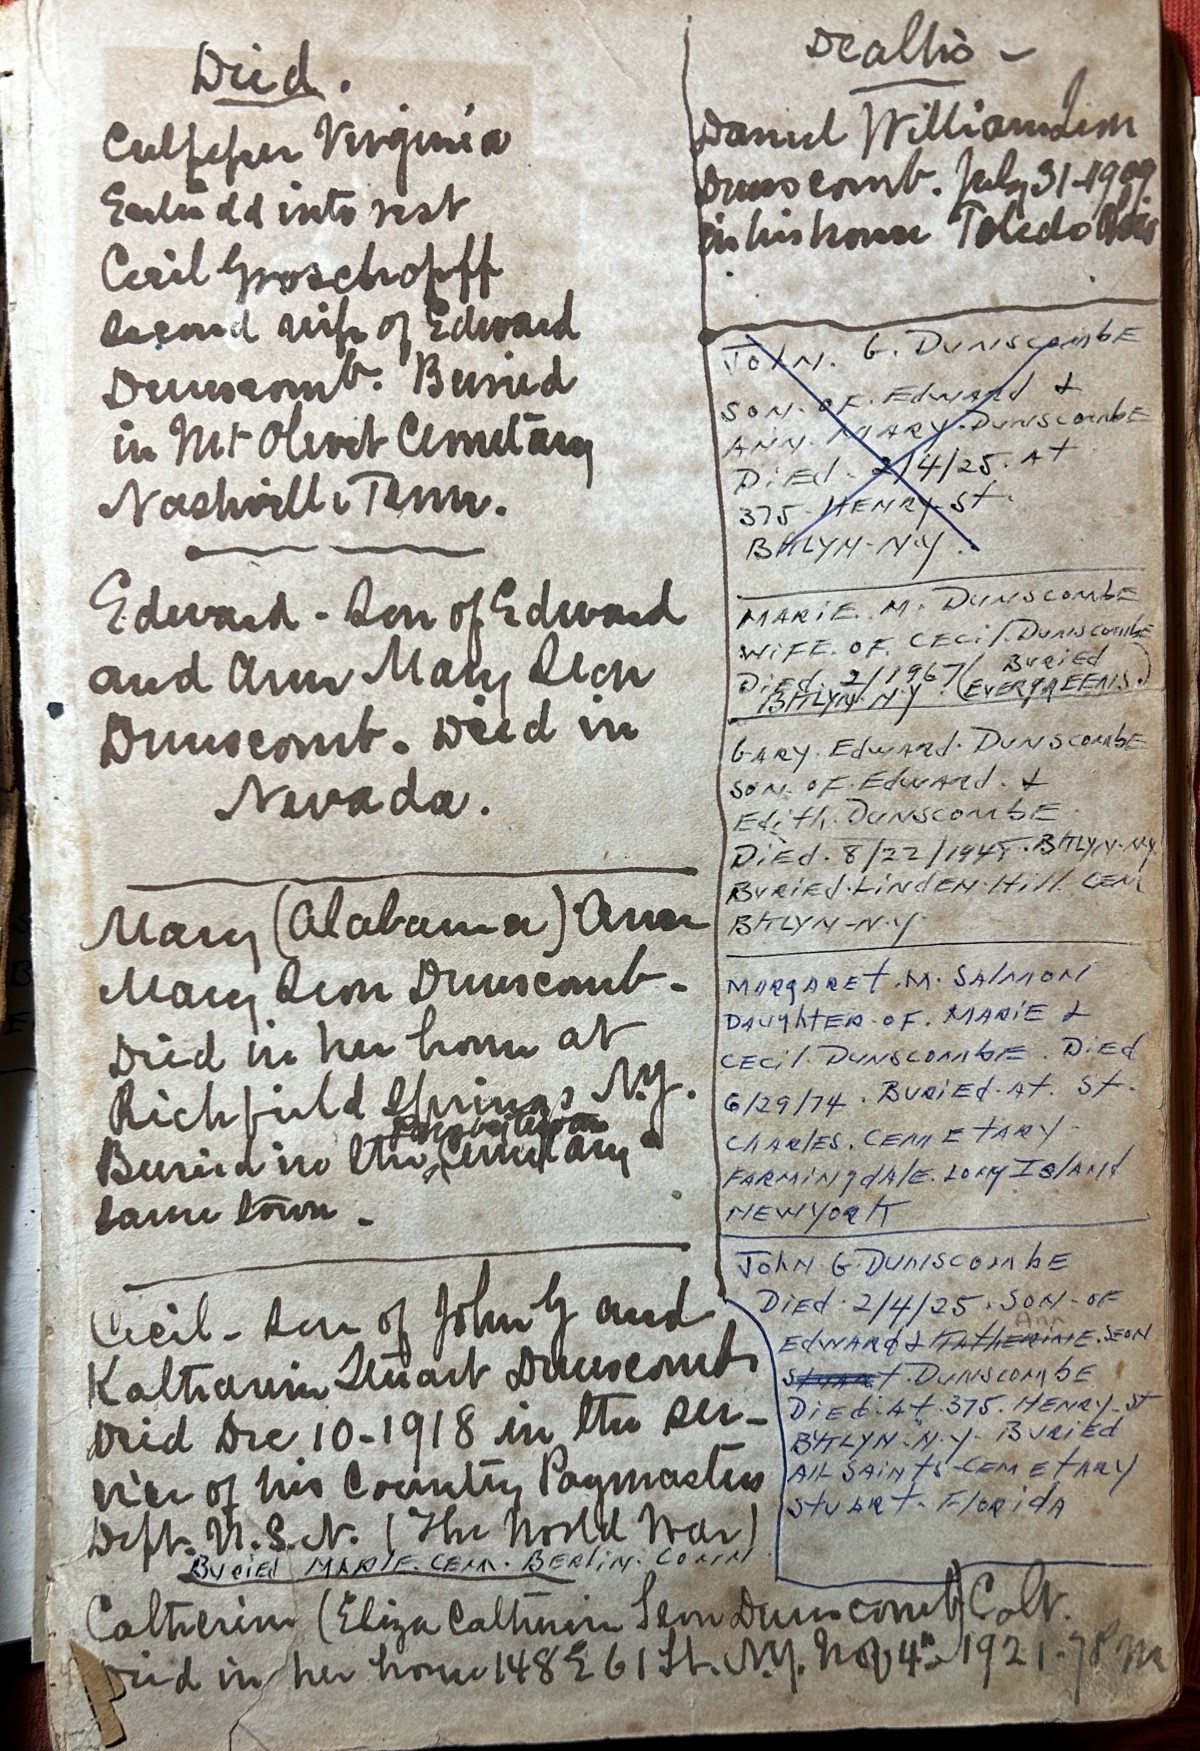 Died.
Culpeper Virginia
Entered into rest
Cecil Groschopff
second wife of Edward
Dunscomb. Buried
in Mt Olivet Cemetary
Nashville Tenn.
Edward - Son of Edward
and Ann Mary Seon
Dunscomb. Died in
Nevada.
Mary (Alabama) Ann
Mary Seon Dunscomb -
Died in her home at
Richfield Springs N.Y.
Buried in the Cemetary
same town.
Cecil - Son of John G and
Katharin Stuart Dunscomb
Died Dec 10-1918 in the ser-
vice of his Country Paymasters
Dept. U.S.N. (The World War)
BURIED MAPLE. CEM. BERLIN. CONN
Catherin (Eliza Catherin Seon Dunscomb) Colt.
Died in her home 148 E 61 St. N.Y. Nov 4th 1921.
Deaths -
Daniel Williamson
Dunscomb. July 31-1909
in his home Toledo Ohio
JOHN. G. DUNSCOMBE
SON. OF. EDWARD &
ANN. MARY. DUNSCOMBE
DIED. 2/4/25. AT
375 HENRY. ST.
BKLYN-N.Y.
MARIE. M. DUNSCOMBE
WIFE. OF. CECIL. DUNSCOMBE
DIED. 2/1967 (BURIED
BKLYN. N.Y. EVERGREENS.)
GARY. EDWARD. DUNSCOMBE
SON. OF. EDWARD. &
EDITH. DUNSCOMBE.
DIED. 8/22/1945. BKLYN-N.Y.
BURIED. LINDEN. HILL CEM
BKLYN-N.Y.
MARGARET. M. SALMON
DAUGHTER. OF. MARIE &
CECIL. DUNSCOMBE. DIED
6/29/74. BURIED. AT. ST.
CHARLES. CEMETARY.
FARMINGDALE. LONG ISLAND
NEW YORK
JOHN G. DUNSCOMBE
DIED. 2/4/25. SON-OF
Ann
EDWARD & KATHERINE. SEON
STUART. DUNSCOMBE
DIED. AT. 375. HENRY. ST
BKLYN. N.Y. BURIED
ALL SAINTS CEMETARY
STUART. FLORIDA